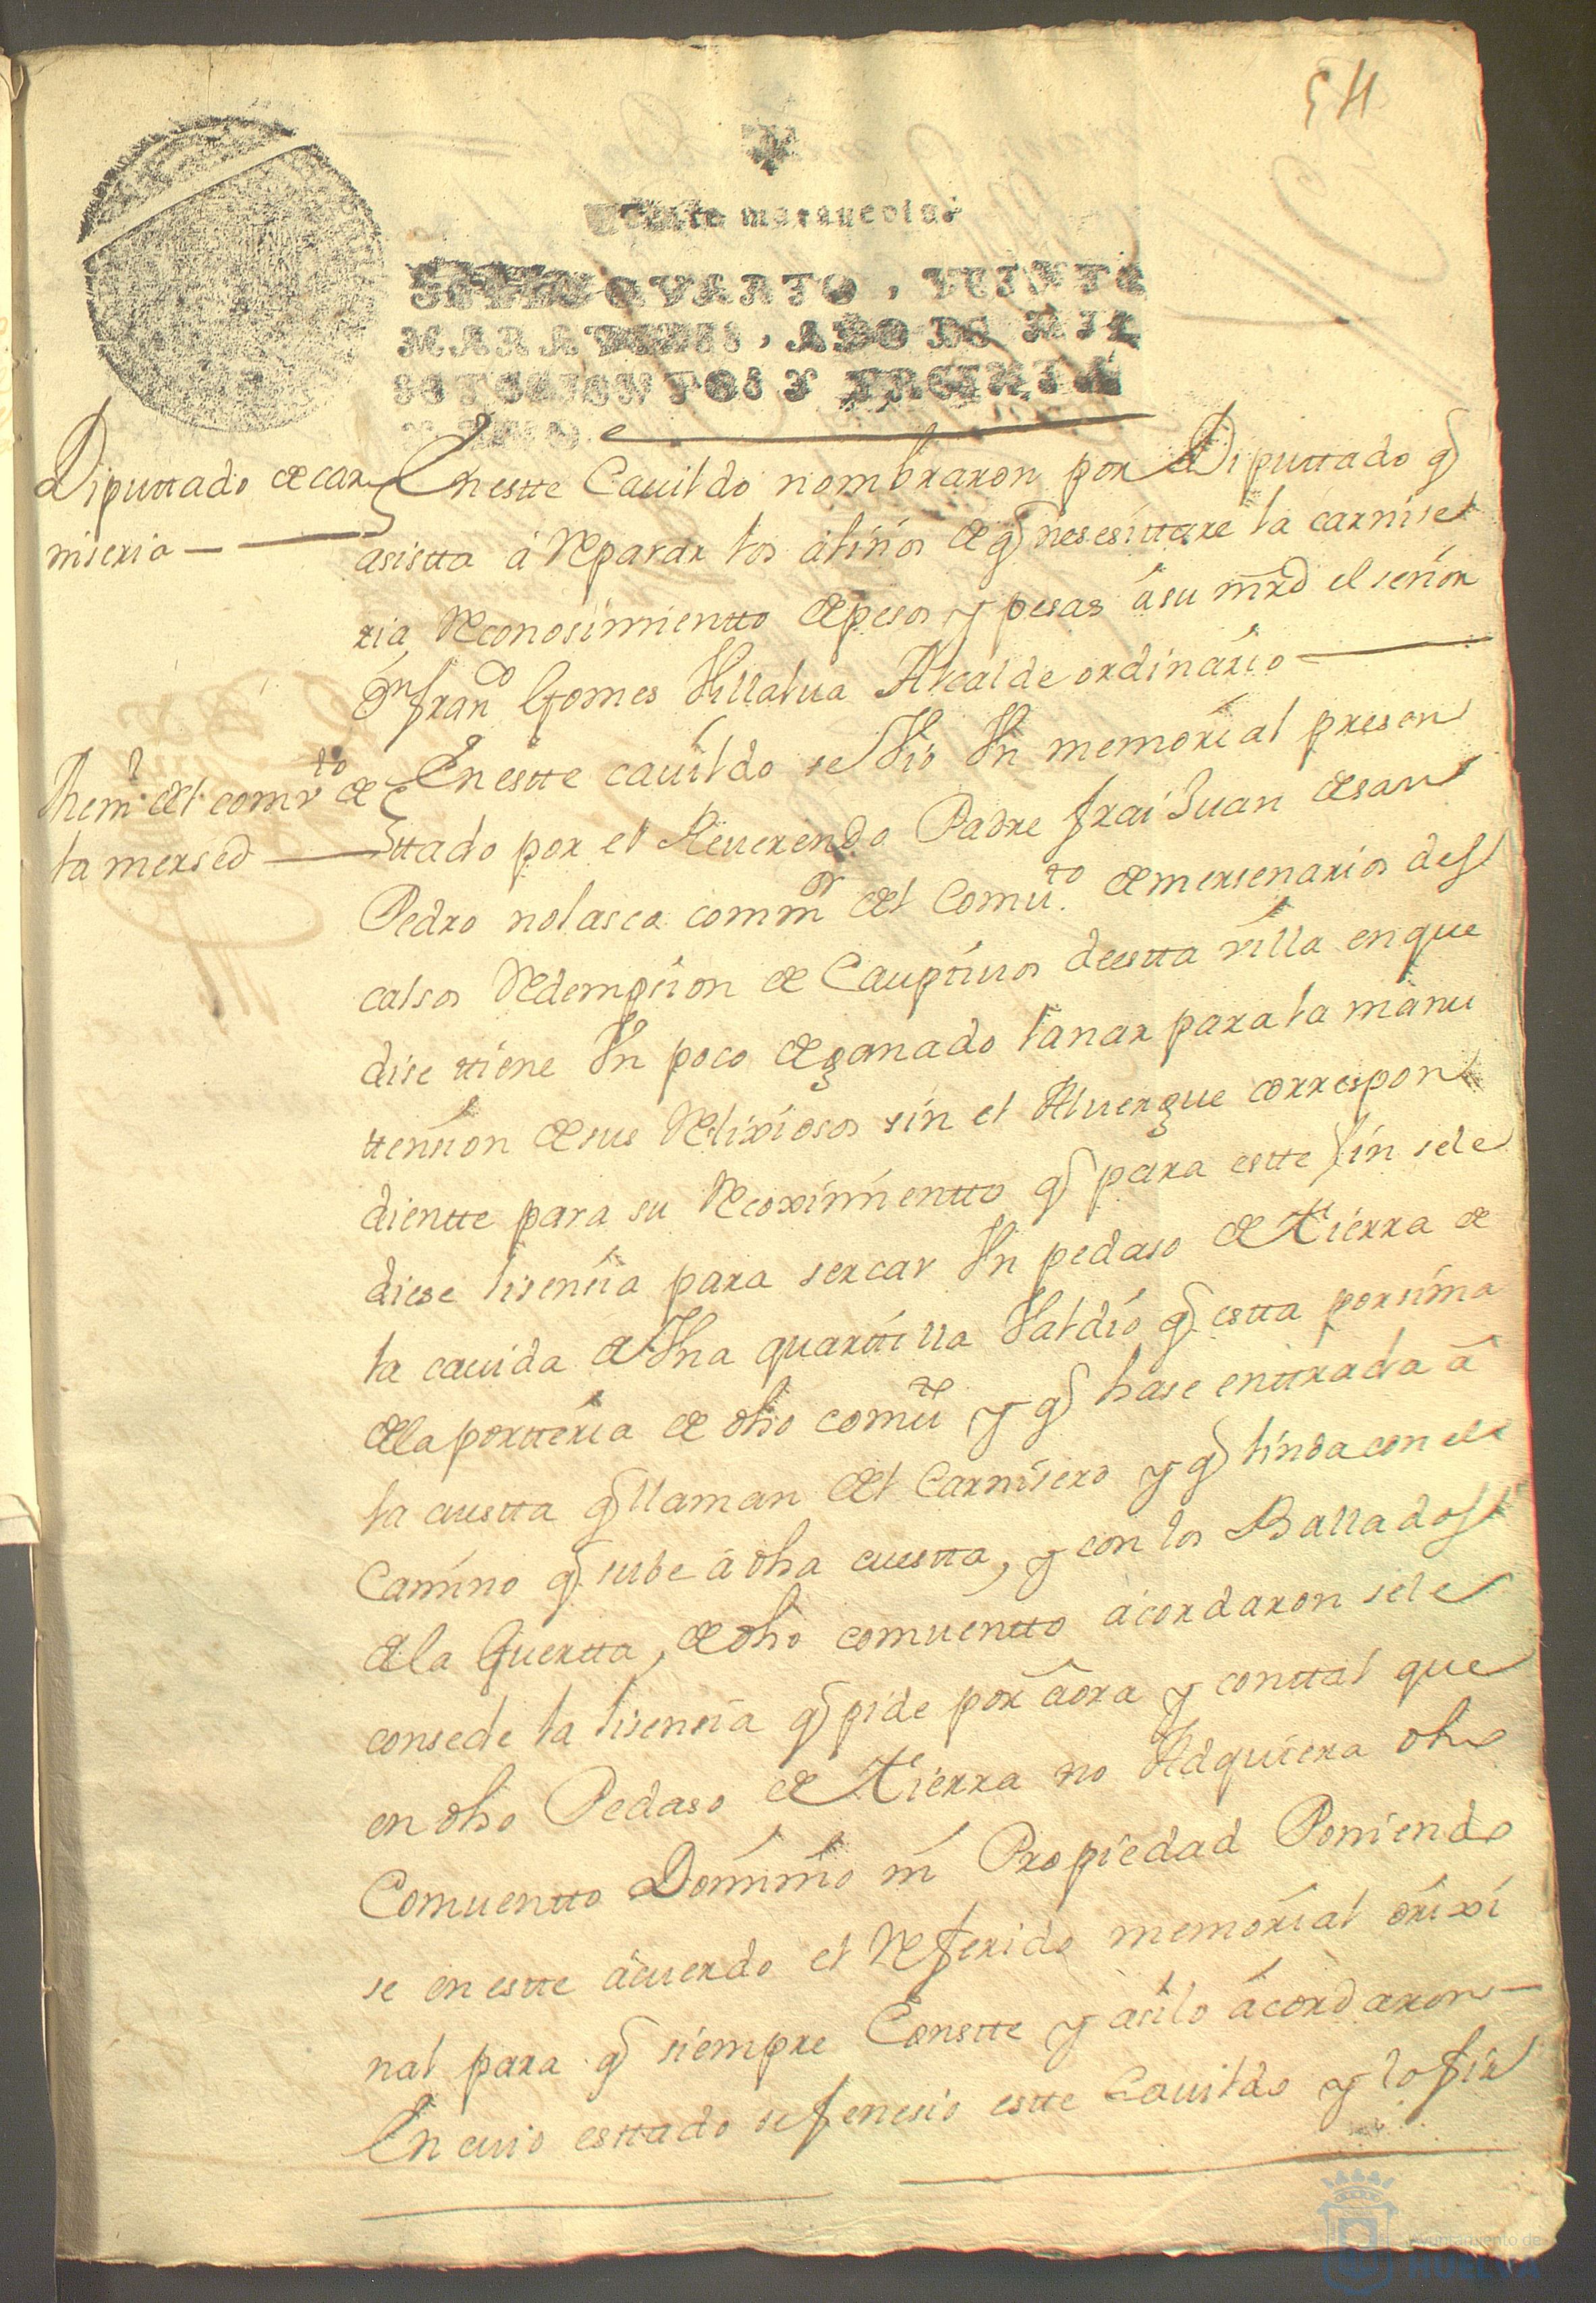 54
Veinte marauedis
SELLO QVARTO, VEINTE
MARAVEDIS, AÑO DE MIL
SETECIENTOS Y TREINTA
Y VNO.
Diputtado de car
niseria
En estte Cauildo nombraron por Diputtado q̃
asistta â Reparar los aliños de q̃ nesesittare la carnise
ria, Reconosimientto de pesos y pesas â su mrd el señor
Dn franco Gomes Villalua Alcalde ordinario
Mem.l del comv.to de
la mersed
En estte cauildo se Vio Vn memorial presen
ttado por el Reuerendo Padre frai Juan de san
Pedro nolasco commor del Comu.to de mersenarios des
calsos Redempsion de Cauptiuos de estta villa en que
dise tiene Vn poco de ganado lanar para la manu
tension de sus Relixiosos sin el Aluergue correspon
dientte para su Recoximientto q̃ para estte fin se le
diese lisensia para sercar Vn pedaso de tierra de
la cauida de Vna quartilla Valdio q̃ estta por sima
de la portteria de dho comuto y q̃ hase enttrada â
la cuestta q̃ llaman del Carnisero y q̃ linda con el
Camino q̃ sube â dha cuestta, y con los Ballados
de la Guertta, de dho comuentto acordaron se le
consede la lisensia q̃ pide por âora y con ttal que
en dho Pedaso de tierra no Adquiera dho
Comuentto Dominio ni Propiedad Poniendo
se en estte âcuerdo el Referido memorial orixi
nal para q̃ siempre Constte y asilo âcordaron
En cuio esttado se fenesio estte Cauildo y lo fir
Ayuntamiento de
HUELVA